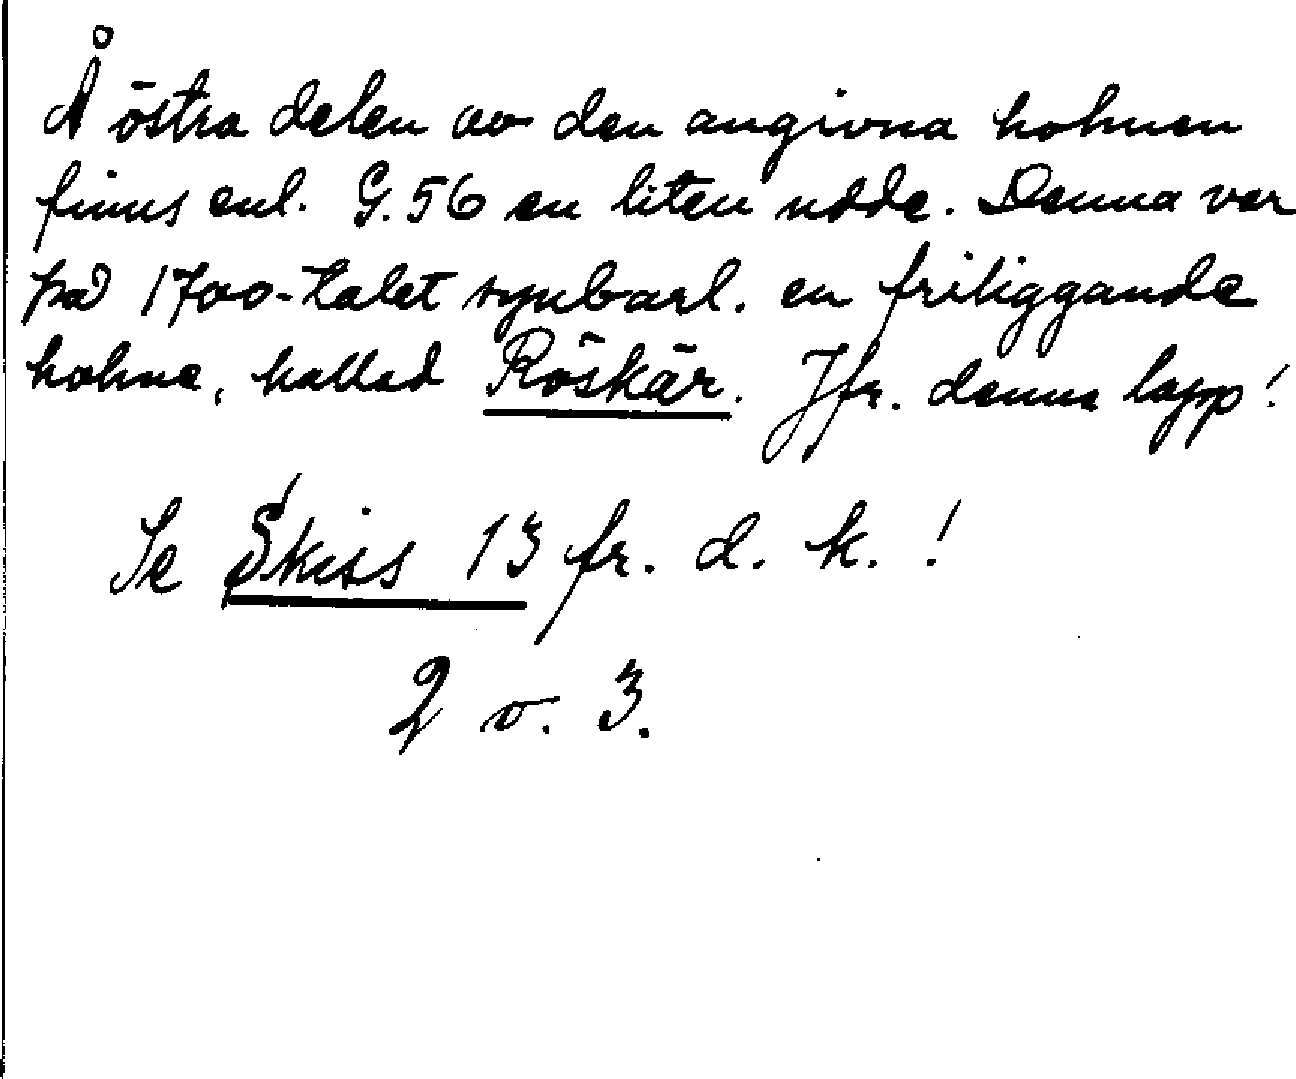 Å östra delen av den angivna holmen
finns enl. G.56 en liten udde. Denna var
på 1700-talet synbarl. en friliggande
holme, kallad Röskär. Jfr. denna lapp!
Se Skiss 13 fr. d. k. !
2 v. 3.